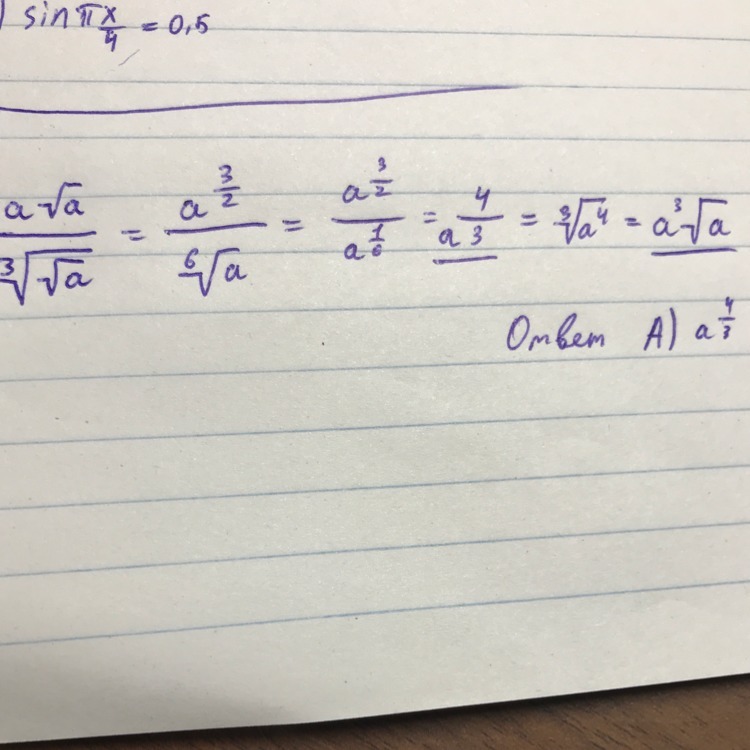 ) sin πx/4 = 0,5
a√a / ∛(√a) = a^(3/2) / ⁶√a = a^(3/2) / a^(1/6) = a^(4/3) = ∛(a⁴) = a ∛a
Ответ А) a^(4/3)